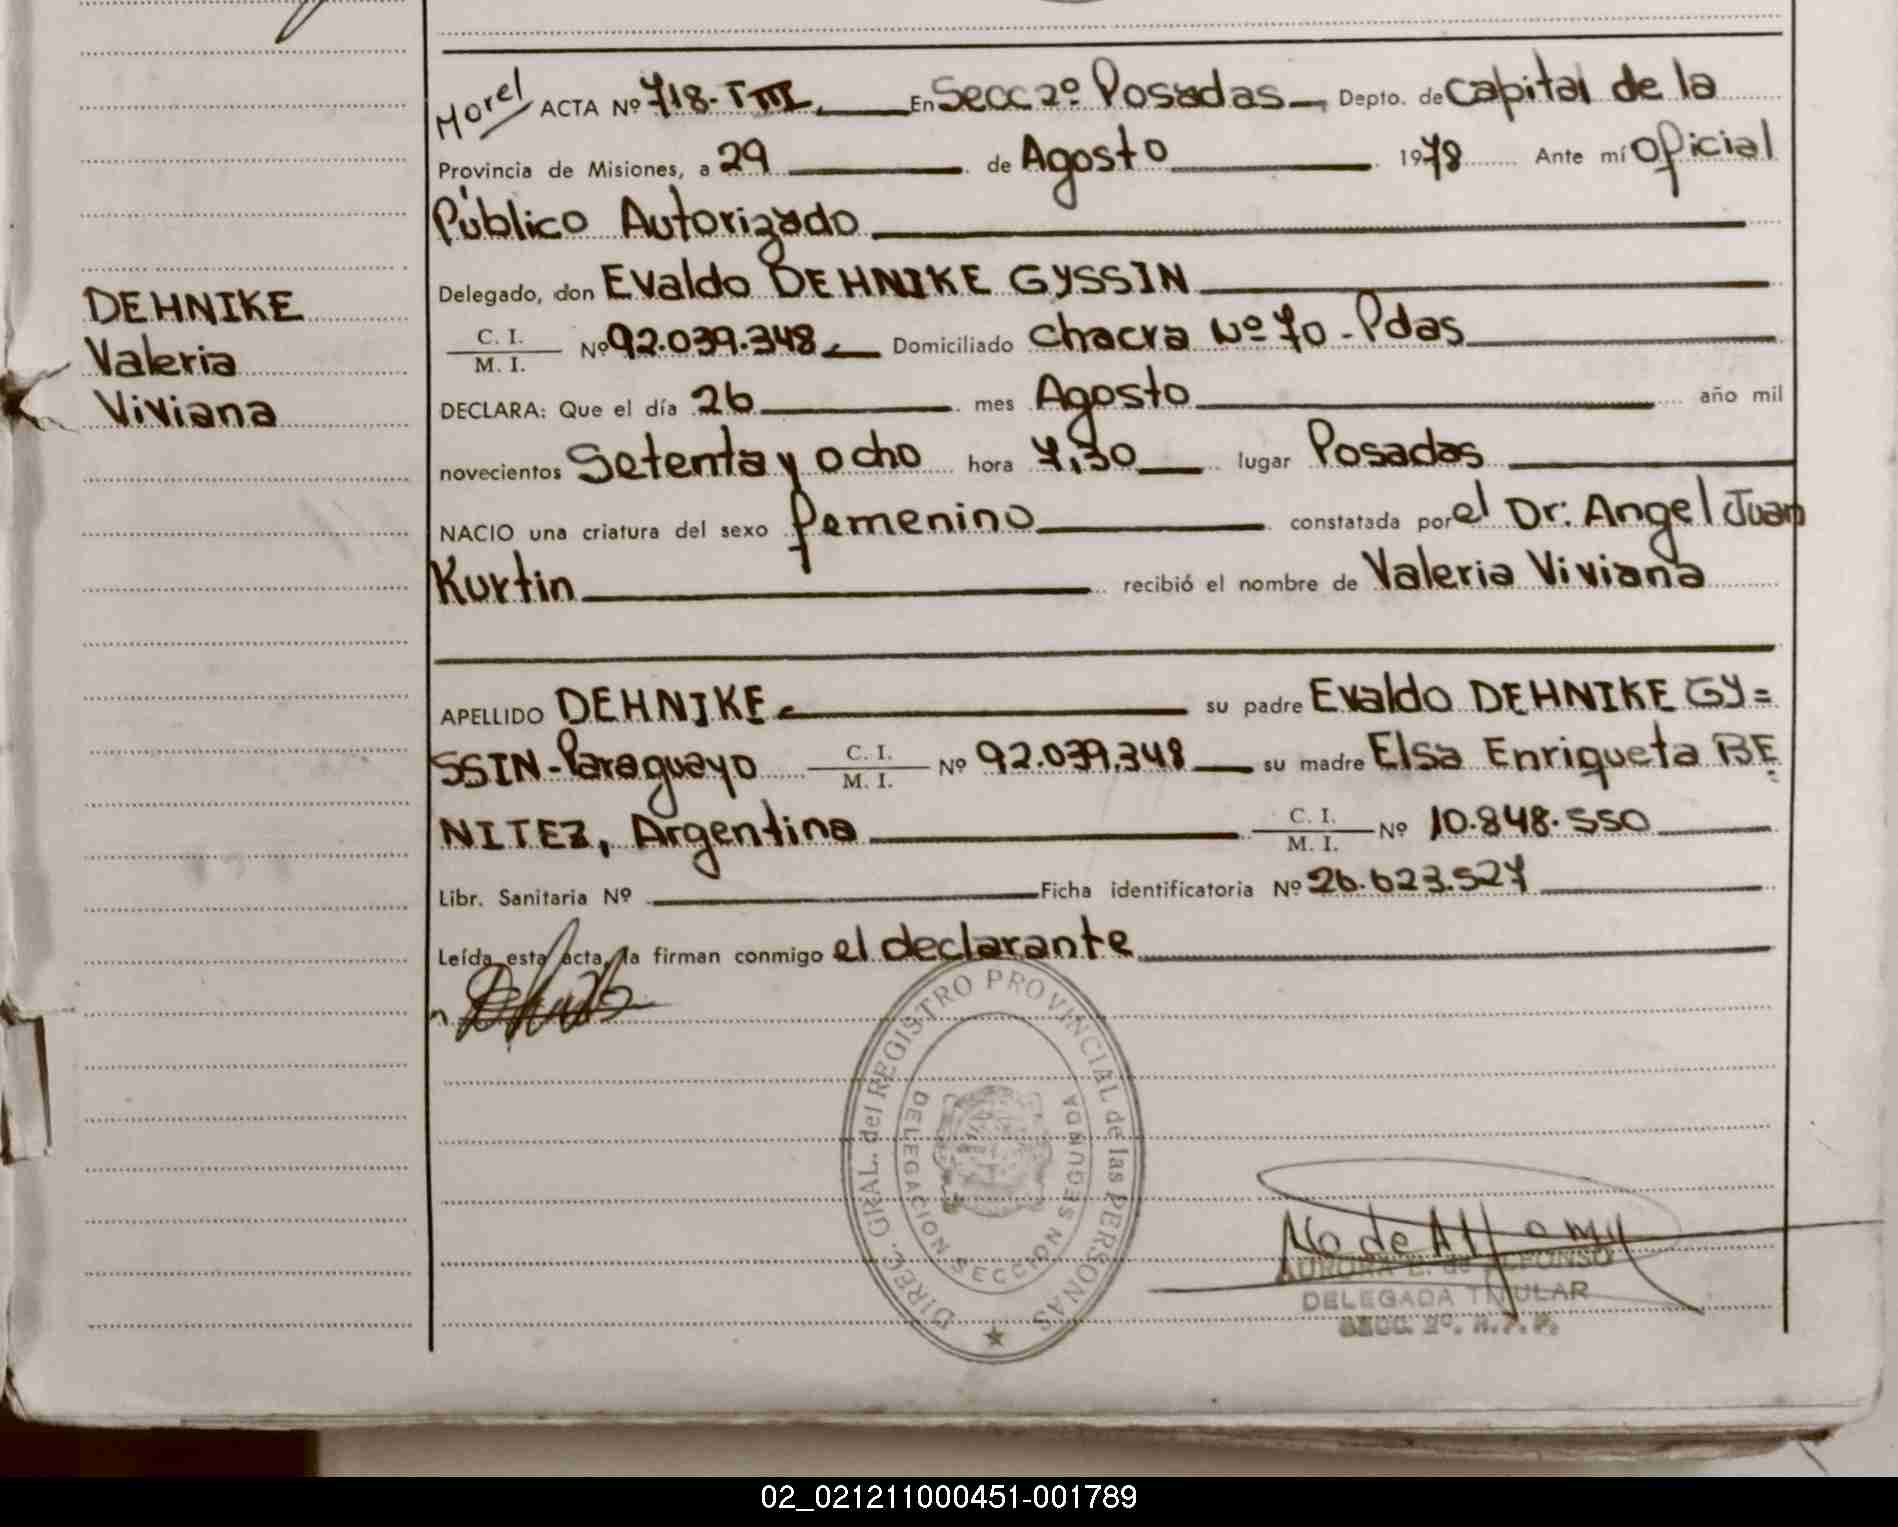 Morel ACTA Nº 718-T III En Secc 2º Posadas Depto. de Capital de la
Provincia de Misiones, a 29 de Agosto 1978 Ante mí Oficial
Público Autorizado
Delegado, don Evaldo DEHNIKE GYSSIN
C. I.
M. I. Nº 92.039.348 Domiciliado Chacra Nº 70 - Pdas
DECLARA: Que el día 26 mes Agosto año mil
novecientos Setenta y ocho hora 7,30 lugar Posadas
NACIO una criatura del sexo femenino constatada por el Dr: Angel Juan
Kurtin recibió el nombre de Valeria Viviana
APELLIDO DEHNIKE su padre Evaldo DEHNIKE GY=
SSIN-Paraguayo C. I. M. I. Nº 92.039.348 su madre Elsa Enriqueta BE
NITEZ, Argentina C. I. M. I. Nº 10.848.550
Libr. Sanitaria Nº Ficha identificatoria Nº 26.623.527
Leída esta acta, la firman conmigo el declarante
DEHNIKE
Valeria
Viviana
DIREC. GRAL. del REGISTRO PROVINCIAL de las PERSONAS
DELEGACION SECCION SEGUNDA
AURORA E. de ALFONSO
DELEGADA TITULAR
SECC. 2º. R.P.P.
02_021211000451-001789